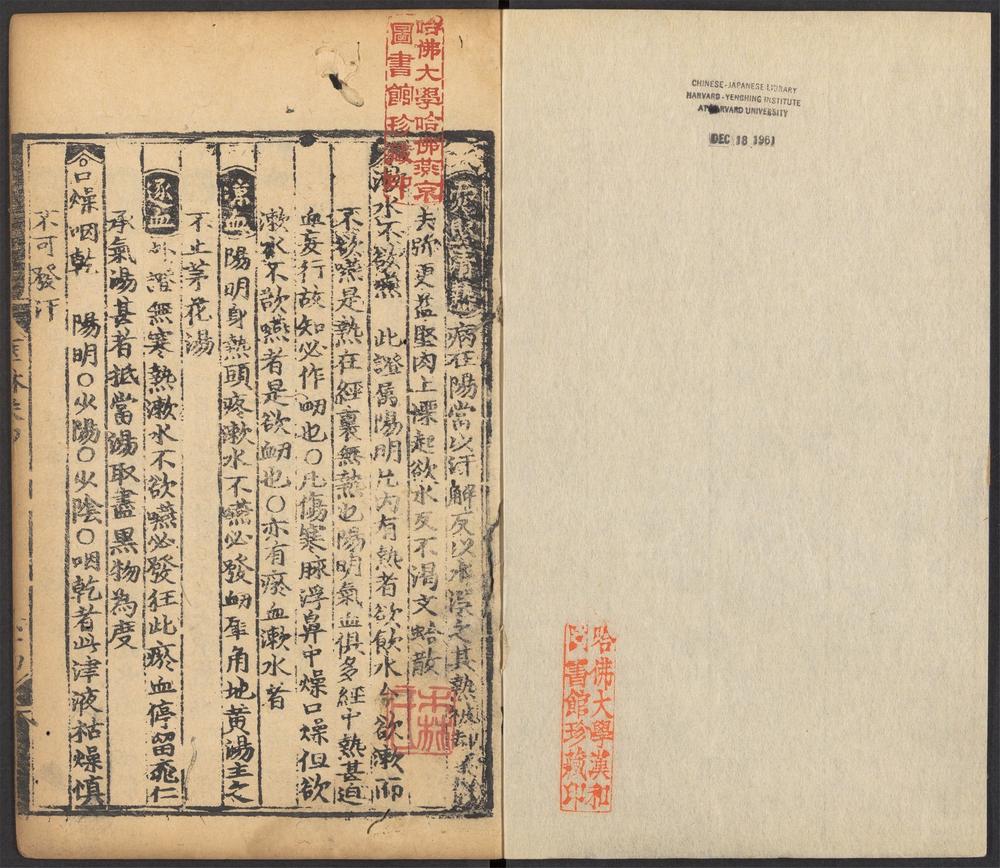 病在陽當以汗解反以水潠之其熱被却
夫弥更益堅肉上慄起欲水反不渴文蛤散
漱水不欲嚥 此證属陽明凢内有熱者欲飲水今欲漱而
不欲嚥是熱在經裏無熱也陽明氣血俱多經中熱甚迫
血妄行故知必作衂也〇凢傷寒脉浮鼻中燥口燥但欲
漱水不欲嚥者是欲衂也〇亦有瘀血漱水者
凉血 陽明身熱頭疼漱水不嚥必發衂犀角地黄湯主之
不止茅花湯
逐血 外證無寒熱漱水不欲嚥必發狂此瘀血停留
承氣湯甚者抵當湯取盡黒物為度
口燥咽乾 陽明〇少陽〇少陰〇咽乾者此津液枯燥慎
不可發汗
哈佛大學哈佛燕京
圖書館珍藏印
CHINESE-JAPANESE LIBRARY
HARVARD-YENCHING INSTITUTE
AT HARVARD UNIVERSITY
DEC 18 1961
哈佛大學漢和
圖書館珍藏印